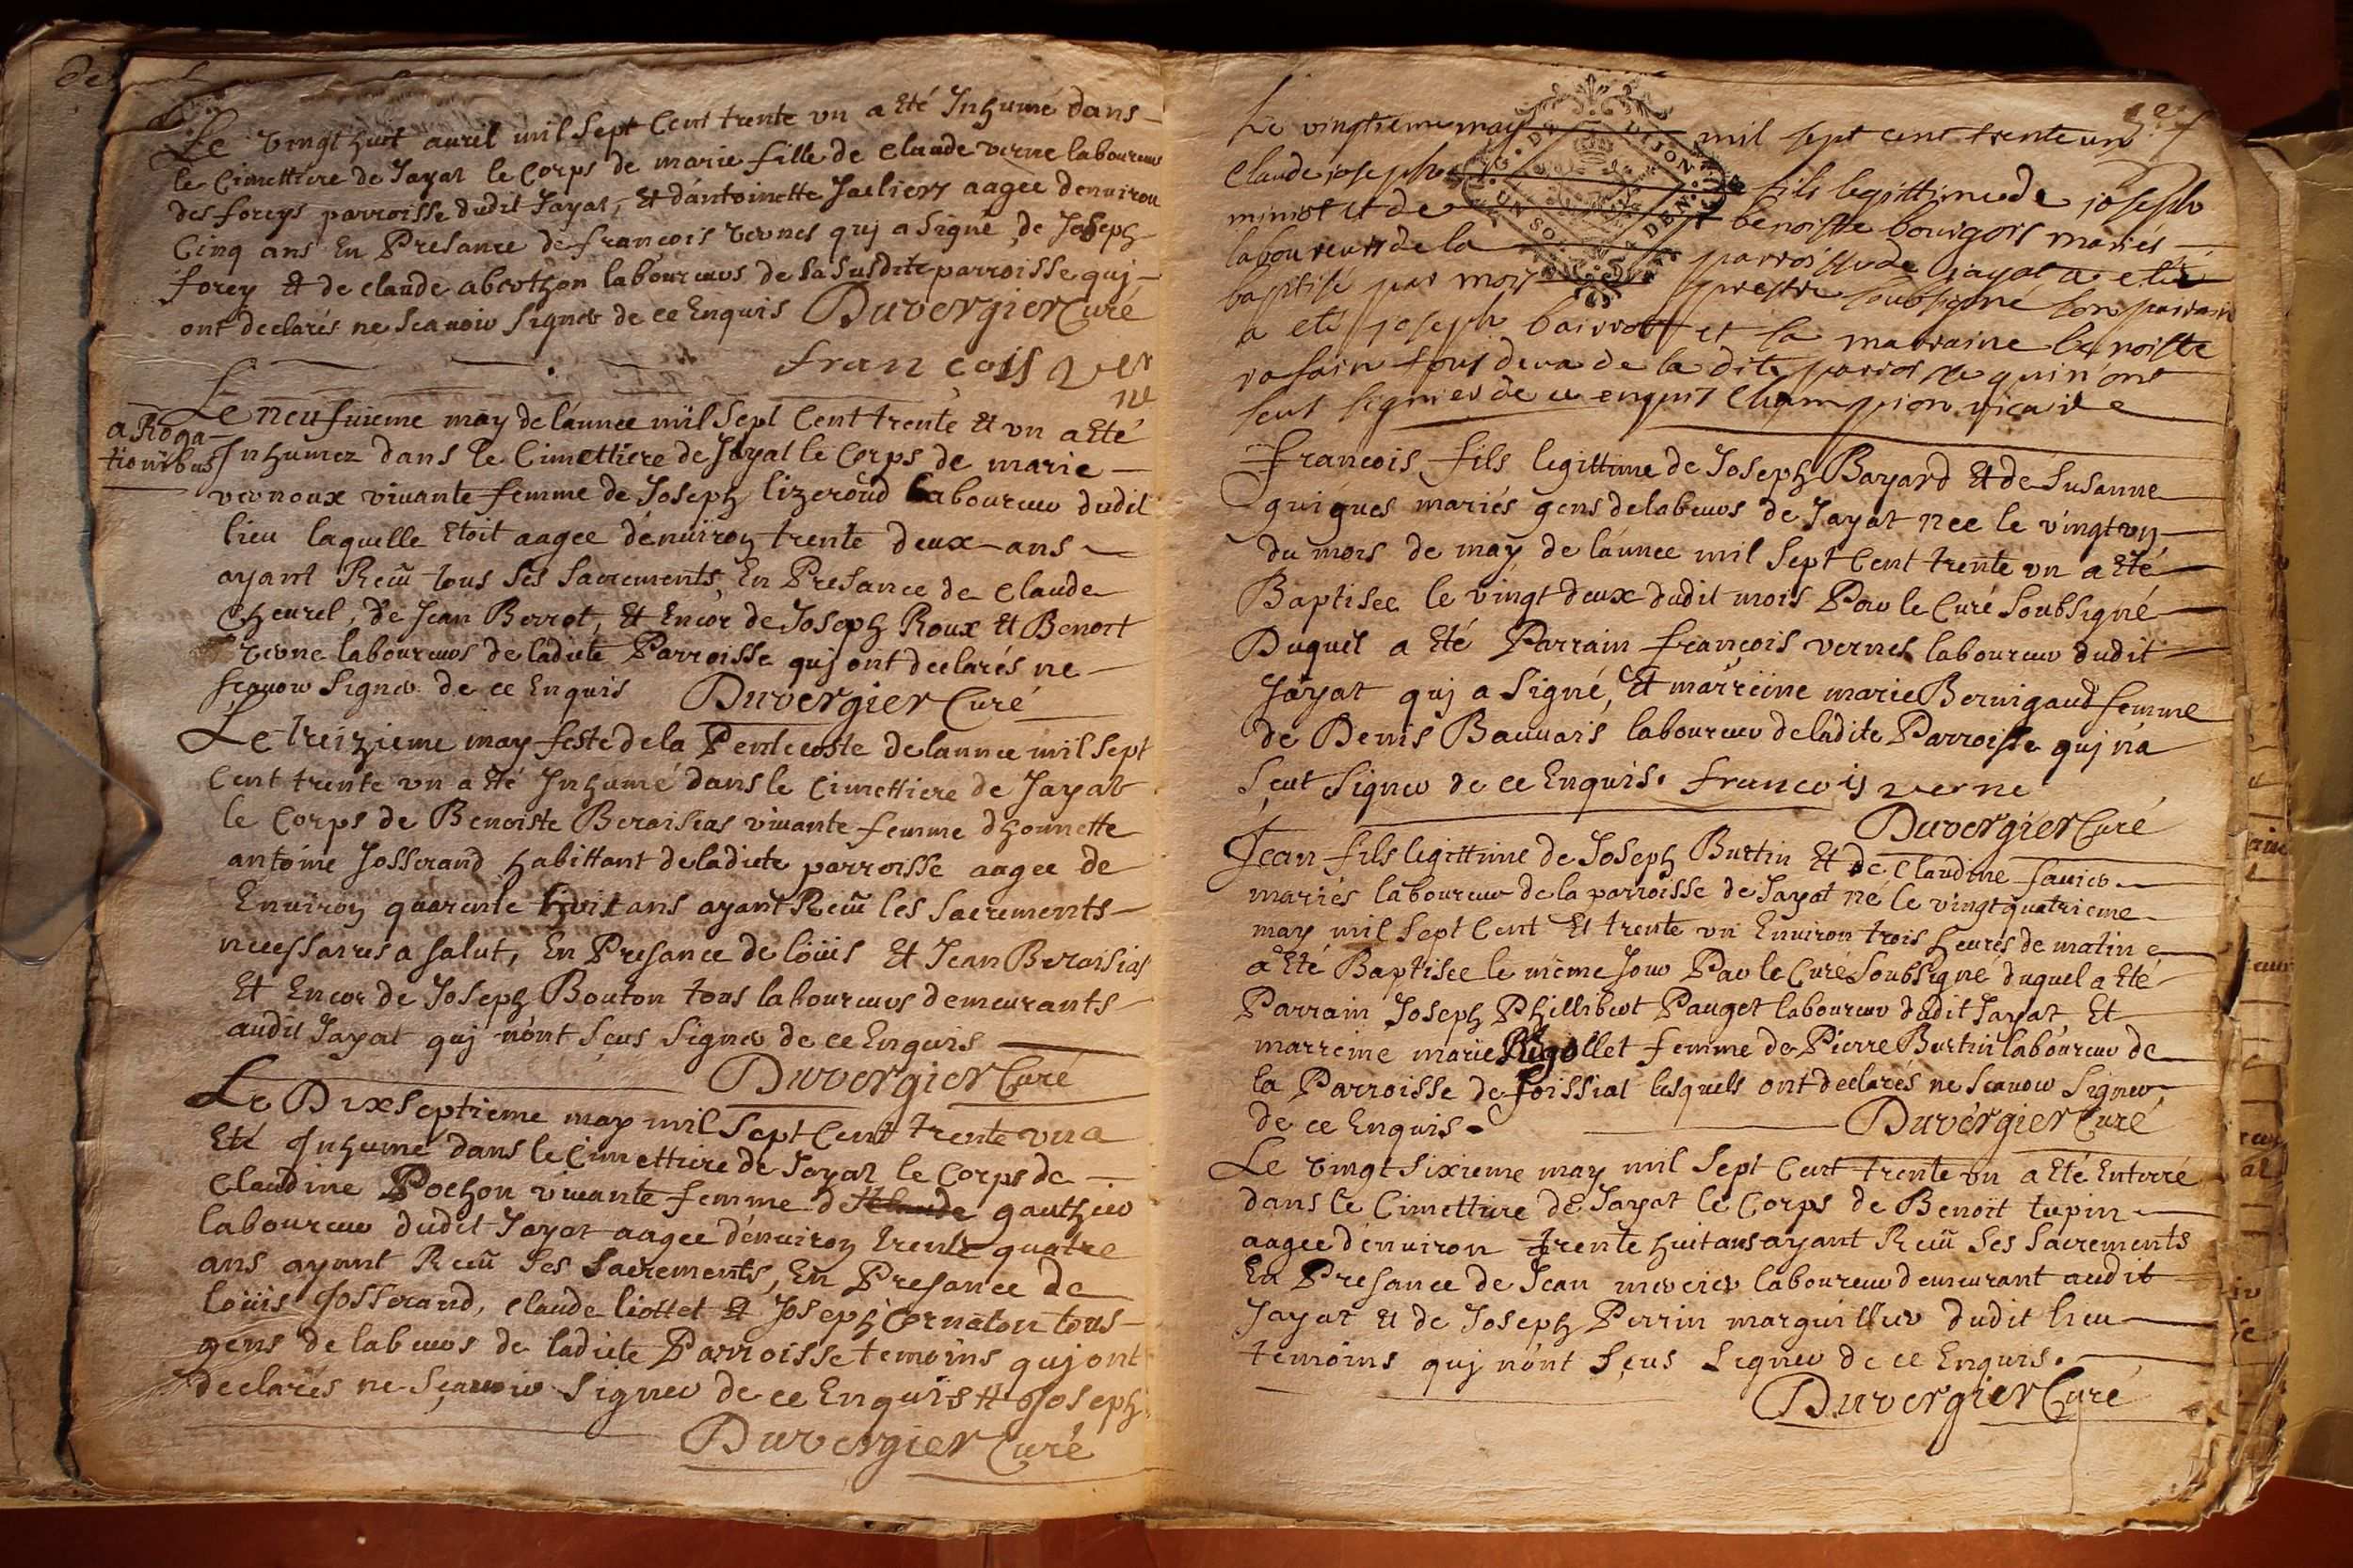 Le vingt huit avril mil Sept Cent trente un a Eté Inhumé dans
le Cimettiere de Jayat le Corps de marie fille de claude verne laboureur
des foreys parroisse dudit Jayat, Et d'antoinette aagee d'environ
Cinq ans En Presance de francois vernes quj a Signé, de Joseph
forey Et de claude laboureurs de la Susdite parroisse quj
ont declarés ne Scavoir Signer de ce Enquis Duvergier Curé
francois ver
ne
Le neufuieme may de l'annee mil Sept Cent trente Et un a Eté
a Roga-
tionibus
Inhumez dans le Cimettiere de Jayat le Corps de marie
vernoux vivante femme de Joseph lizeroud laboureur dudit
lieu laquelle Etoit aagee d'environ trente deux ans
ayant Receu tous Ses Sacrements, En Presance de Claude
cheurel, de Jean Berrot, Et Encor de Joseph Roux Et Benoit
verne laboureurs de ladicte Parroisse quj ont declarés ne
scavoir Signer de ce Enquis Duvergier Curé
Le treizieme may feste de la Pentecoste de lannee mil Sept
Cent trente un a Eté Inhumé dans le Cimettiere de Jayat
le Corps de Benoiste Beraisias vivante femme dhonnette
antoine Josserand habittant de ladicte parroisse aagee de
Environ quarente huit ans ayant Receu les Sacrements
necessaires a salut, En Presance de loüis Et Jean Beraisias
Et Encor de Joseph Bouton tous laboureurs demeurants
audit Jayat quj n'ont Sçus Signer de ce Enquis
Duvergier Curé
Le Dixseptieme may mil Sept Cent trente un a
Eté Inhumé dans le Cimettiere de Jayat le Corps de
Claudine Pochon vivante femme de # claude gauthier
laboureur dudit Jayat aagee d'environ trente quatre
ans ayant Receu Ses Sacrements, En Presance de
loüis Josserand, claude liottet Et Joseph Cornaton tous
gens de labeurs de ladicte Parroisse temoins quj ont
declarés ne Sçavoir Signer de ce Enquis # Joseph
Duvergier Curé
Le vingtieme may mil sept cent trente un
Claude joseph fils legittime de joseph
minot et de benoiste bourgois mariés
laboureurs de la parroisse de jayat a eté
baptisé par moy prestre soubsigné son parrain
a eté joseph et sa marraine benoiste
tous deux de la dite qui n'ont
seut signer de ce enquis Champion vicaire
Francois fils legittime de Joseph Bayard Et de Susanne
guigues mariés gens de labeurs de Jayat nee le vingt un
du mois de may de l'annee mil Sept Cent trente un a Eté
Baptisee le vingt deux dudit mois Par le Curé Soubsigné
Duquel a Eté Parrain françois vernes laboureur dudit
Jayat quj a Signé, Et marreine marie Bernigaud femme
de Denis Bauvais laboureur de ladite Parroisse quj n'a
Sçeut Signer de ce Enquis. francois verne
Duvergier Curé
Jean fils legittime de Joseph Burtin Et de Claudine favier
mariés laboureur de la parroisse de Jayat né le vingt quatrieme
may mil Sept Cent Et trente un Environ trois heures de matin e
a Eté Baptisee le même Jour Par le Curé Soubsigné duquel a Eté
Parrain Joseph Phillibert Pauget laboureur dudit Jayat, Et
marreine marie Rigollet femme de Pierre Burtin laboureur de
la Parroisse de foissiat lesquels ont declarés ne Scavoir Signer
de ce Enquis. Duvergier Curé
Le vingt Sixieme may mil Sept Cent trente un a Eté Enterré
dans le Cimettiere de Jayat le Corps de Benoit tupin
aagee d'environ trente huit ans ayant Receu Ses Sacrements
En Presance de Jean mercier laboureur demeurant audit
Jayat Et de Joseph Perrin marguillier dudit lieu
temoins quj n'ont Sçus Signer de ce Enquis.
Duvergier Curé